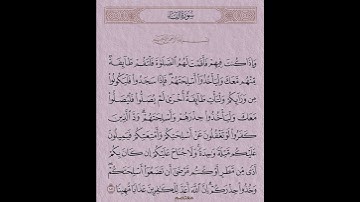 سورة النساء
بسم الله الرحمن الرحيم
وَإِذَا كُنتَ فِيهِمْ فَأَقَمْتَ لَهُمُ ٱلصَّلَوٰةَ فَلْتَقُمْ طَآئِفَةٌ
مِّنْهُم مَّعَكَ وَلْيَأْخُذُوٓا۟ أَسْلِحَتَهُمْ فَإِذَا سَجَدُوا۟ فَلْيَكُونُوا۟
مِن وَرَآئِكُمْ وَلْتَأْتِ طَآئِفَةٌ أُخْرَىٰ لَمْ يُصَلُّوا۟ فَلْيُصَلُّوا۟
مَعَكَ وَلْيَأْخُذُوا۟ حِذْرَهُمْ وَأَسْلِحَتَهُمْ ۗ وَدَّ ٱلَّذِينَ
كَفَرُوا۟ لَوْ تَغْفُلُونَ عَنْ أَسْلِحَتِكُمْ وَأَمْتِعَتِكُمْ فَيَمِيلُونَ
عَلَيْكُم مَّيْلَةً وَٰحِدَةً ۚ وَلَا جُنَاحَ عَلَيْكُمْ إِن كَانَ بِكُمْ
أَذًى مِّن مَّطَرٍ أَوْ كُنتُم مَّرْضَىٰٓ أَن تَضَعُوٓا۟ أَسْلِحَتَكُمْ ۖ
وَخُذُوا۟ حِذْرَكُمْ ۗ إِنَّ ٱللَّهَ أَعَدَّ لِلْكَٰفِرِينَ عَذَابًا مُّهِينًا